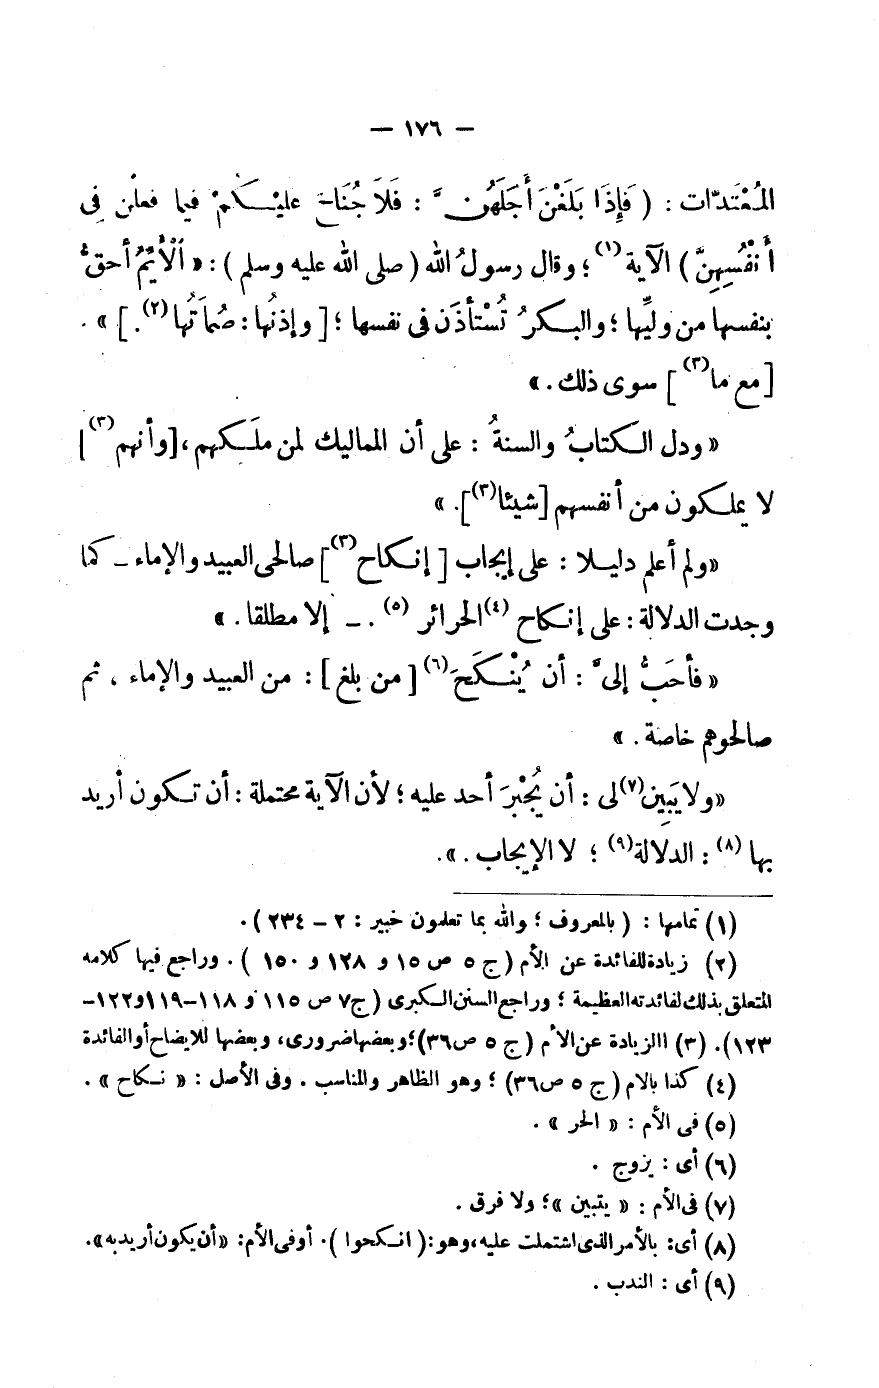 — ١٧٦ —
المُعْتَدّات : ( فَإِذَا بَلَغْنَ أَجَلَهُنَّ : فَلَا جُنَاحَ عليْكُمْ فيما فعلْن فِى
أَنفُسِهِنَّ ) الآية (١) ؛ وقال رسولُ الله ( صلى الله عليه وسلم ) : « اَلْأَيِّمُ أحقُّ
بنفسها من وليِّها ؛ والبكرُ تُسْتأذَن فى نفسها ؛ [ وإذنُها : صُمَاتُها (٢) . ] » .
[ مع ما (٣) ] سوى ذلك . »
« ودل الكتابُ والسنةُ : على أن المماليك لمن ملَكهم ، [ وأنهم (٣) ]
لا يملكون من أنفسهم [ شيئا (٣) ] . »
« ولم أعلم دليلا : على إيجاب [ إنكاح (٣) ] صالحى العبيد والإماء ــ كما
وجدت الدلالة : على إنكاح (٤) الحرائر (٥) . ــ إلا مطلقا . »
« فأحَبُّ إلىَّ : أن يُنْكَحَ (٦) [ من بلغ ] : من العبيد والإماء ، ثم
صالحوهم خاصة . »
« ولا يَبِين (٧) لى : أن يُجْبَرَ أحد عليه ؛ لأن الآية محتملة : أن تكون أريد
بها (٨) : الدلالة (٩) ؛ لا الإيجاب . » .
(١) تمامها : ( بالمعروف ؛ والله بما تعلمون خبير : ٢ – ٢٣٤ ) .
(٢) زيادة للفائدة عن الأم ( ج ٥ ص ١٥ و ١٢٨ و ١٥٠ ) . وراجع فيها كلامه
المتعلق بذلك لفائدته العظيمة ؛ وراجع السنن الكبرى ( ج٧ ص ١١٥ و ١١٨–١١٩ و١٢٢–
١٢٣ ) . (٣) االزيادة عن الأم ( ج ٥ ص ٣٦ ) ؛ وبعضها ضرورى ، وبعضها للايضاح أو الفائدة
(٤) كذا بالام ( ج ٥ ص ٣٦ ) ؛ وهو الظاهر والمناسب . وفى الأصل : « نكاح » .
(٥) فى الأم : « الحر » .
(٦) أى : يزوج .
(٧) فى الأم : « يتبين » ؛ ولا فرق .
(٨) أى : بالأمر الذى اشتملت عليه ، وهو : ( انكحوا ) . أو فى الأم : « أن يكون أريد به » .
(٩) أى : الندب .